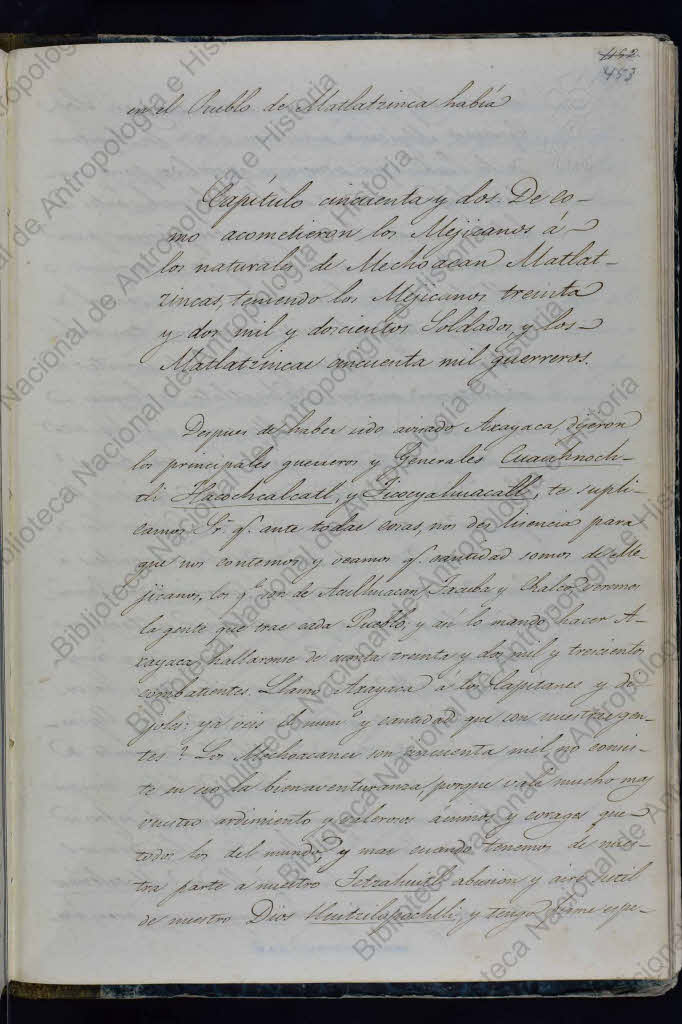 452
453
en el Pueblo de Matlatzinca había
Capítulo cincuenta y dos. De co-
mo acometieron los Mejicanos á
los naturales de Mechoacan Matlat-
zincas, teniendo los Mejicanos treinta
y dos mil y doscientos Soldados, y los
Matlatzincas cincuenta mil guerreros.
Despues de haber sido avisado Axayaca, dijeron
los principales guerreros y Generales Cuauhnoch-
tli Tlacochcalcatl, y Ticocyahuacatl, te supli-
camos Sr. q.e ante todas cosas, nos des licencia para
que nos contemos y veamos q.e cantidad somos de Me-
jicanos, los q.e son de Aculhuacan, Tacuba y Chalco, veremos
la gente que trae cada Pueblo, y así lo mandó hacer A-
xayaca, hallaronse de cuenta treinta y dos mil y trescientos
combatientes. Llamó Axayaca á los Capitanes y dí-
joles: ya veis el num.o y cantidad que son nuestras gen-
tes? Los Mechoacanes son cincuenta mil, no consis-
te en eso la bienaventuranza, porque vale mucho mas
vuestro ardimiento y valerosos ánimos y corages que
todos los del mundo, y mas cuando tenemos de nues-
tra parte á nuestro Tetzahuitl abusion y aire sutil
de nuestro Dios Huitzilopochtli, y tengo firme espe-
Biblioteca Nacional de Antropología e Historia